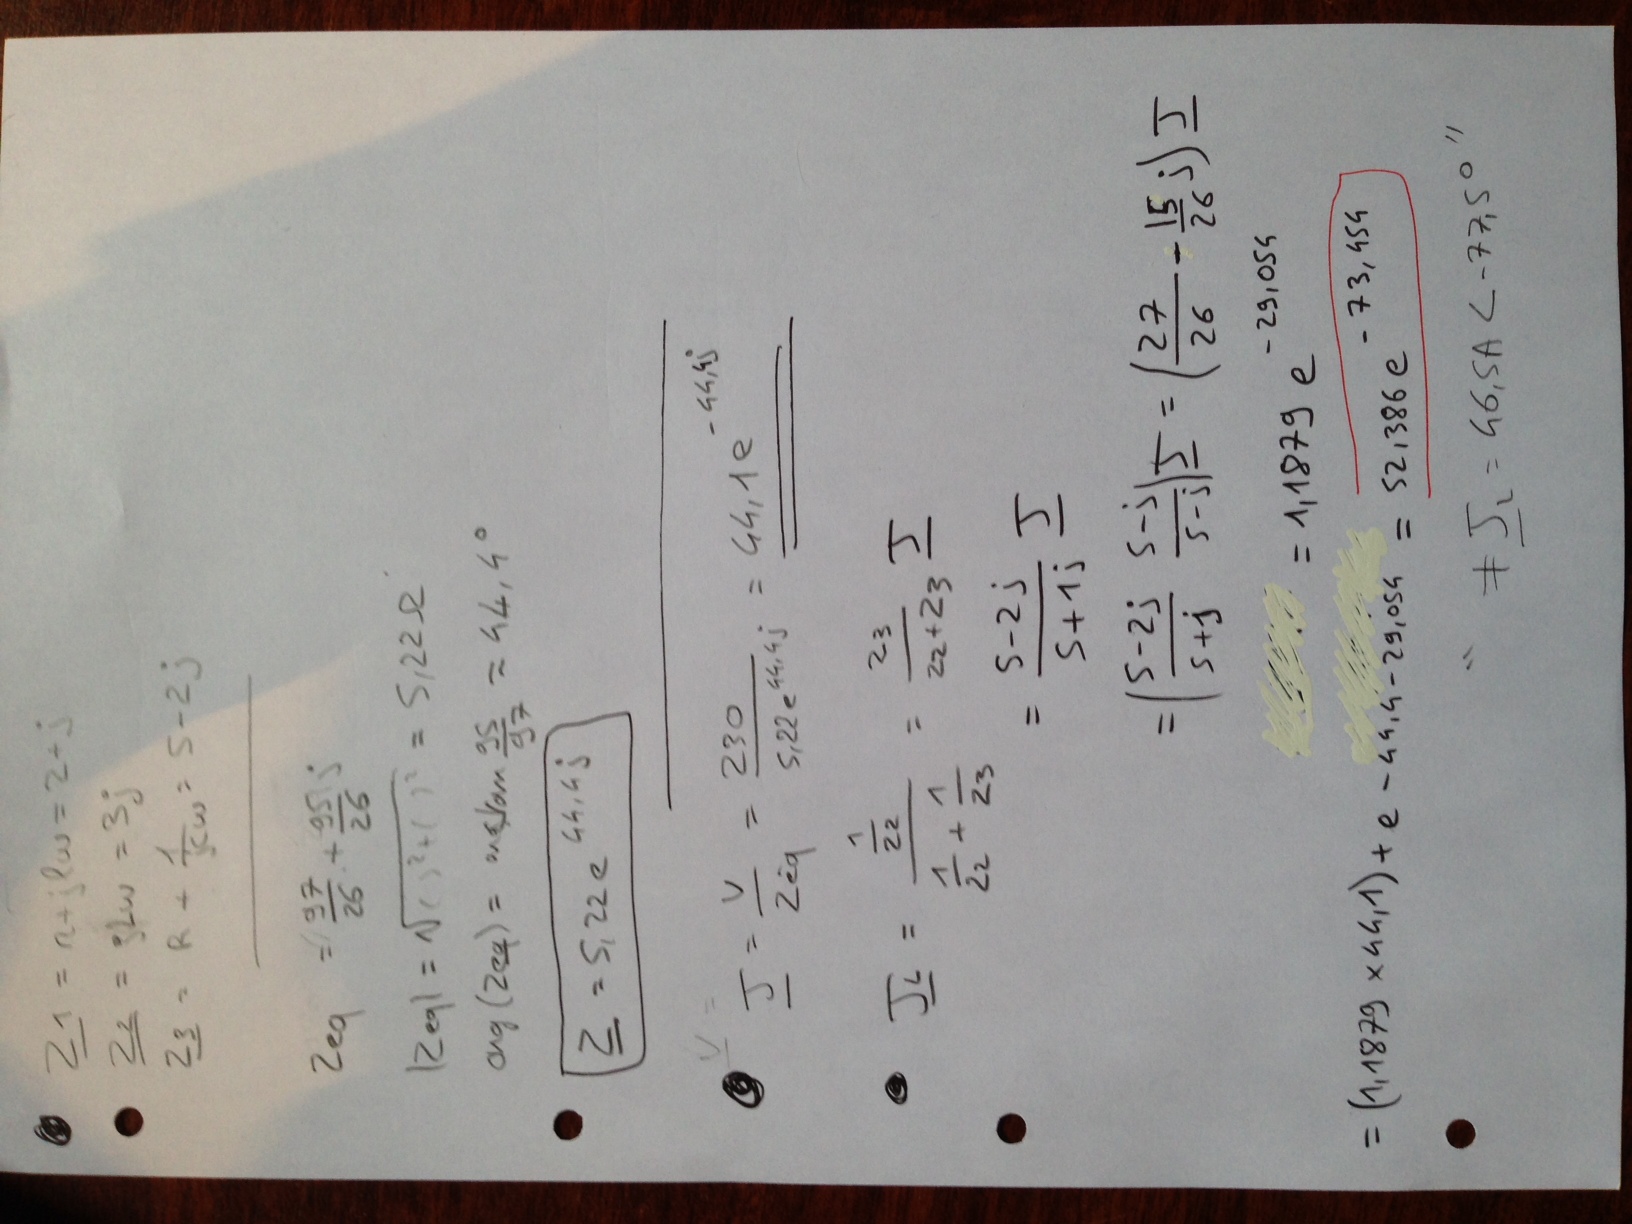 Z1 = r + jlω = 2 + j
Z2 = jLω = 3j
Z3 = R + 1/jcω = 5 - 2j
Zeq = 97/26 + 95/26 j
|Zeq| = √( )² + ( )² = 5,22 Ω
arg(Zeq) = arctan 95/97 = 44,4°
Z = 5,22 e^44,4j
V =
J = V/Zeq = 230/5,22e^44,4j = 44,1 e^-44,4j
JL = (1/Z2)/(1/Z2 + 1/Z3) = Z3/(Z2+Z3) J
= (5-2j)/(5+1j) J
= ((5-2j)/(5+j) (5-j)/(5-j)) J = (27/26 - 15/26 j) J
= 1,1879 e^-29,054
= (1,1879 × 44,1) + e - 44,4 - 29,054 = 52,386 e^-73,454
" ≠ JL = 46,5A < -77,5° "